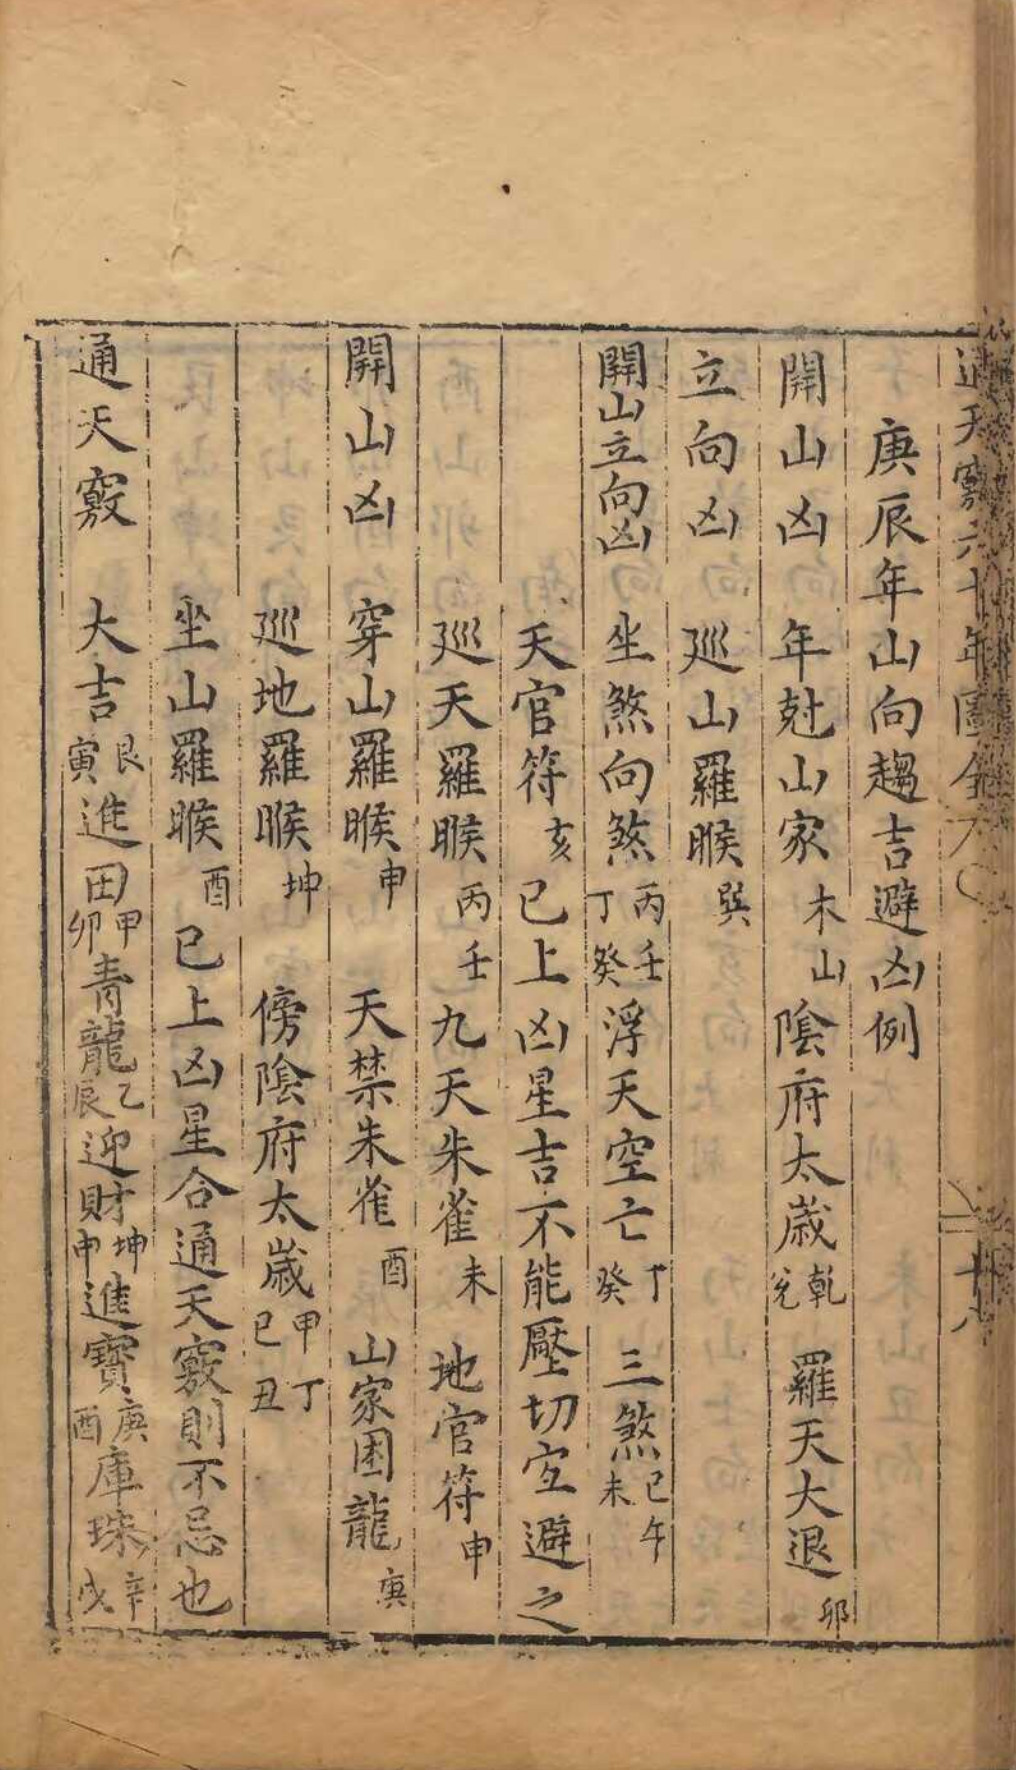 通天竅六十年圖
廿八
庚辰年山向趨吉避凶例
開山凶 年尅山家木山 陰府太歳乾兊 羅天大退卯
立向凶 廵山羅睺巽
開山立向凶 坐煞向煞丙壬丁癸 浮天空亡丁癸 三煞巳午未
天官符亥 已上凶星吉不能壓切宐避之
廵天羅睺丙壬 九天朱雀未 地官符申
開山凶 穿山羅睺申 天禁朱雀酉 山家困龍庚
廵地羅睺坤 傍陰府太歳甲丁巳丑
坐山羅睺酉 已上凶星合通天竅則不忌也
通天竅 大吉艮寅 進田甲卯 青龍乙辰 迎財坤申 進寶庚酉 庫珠辛戌